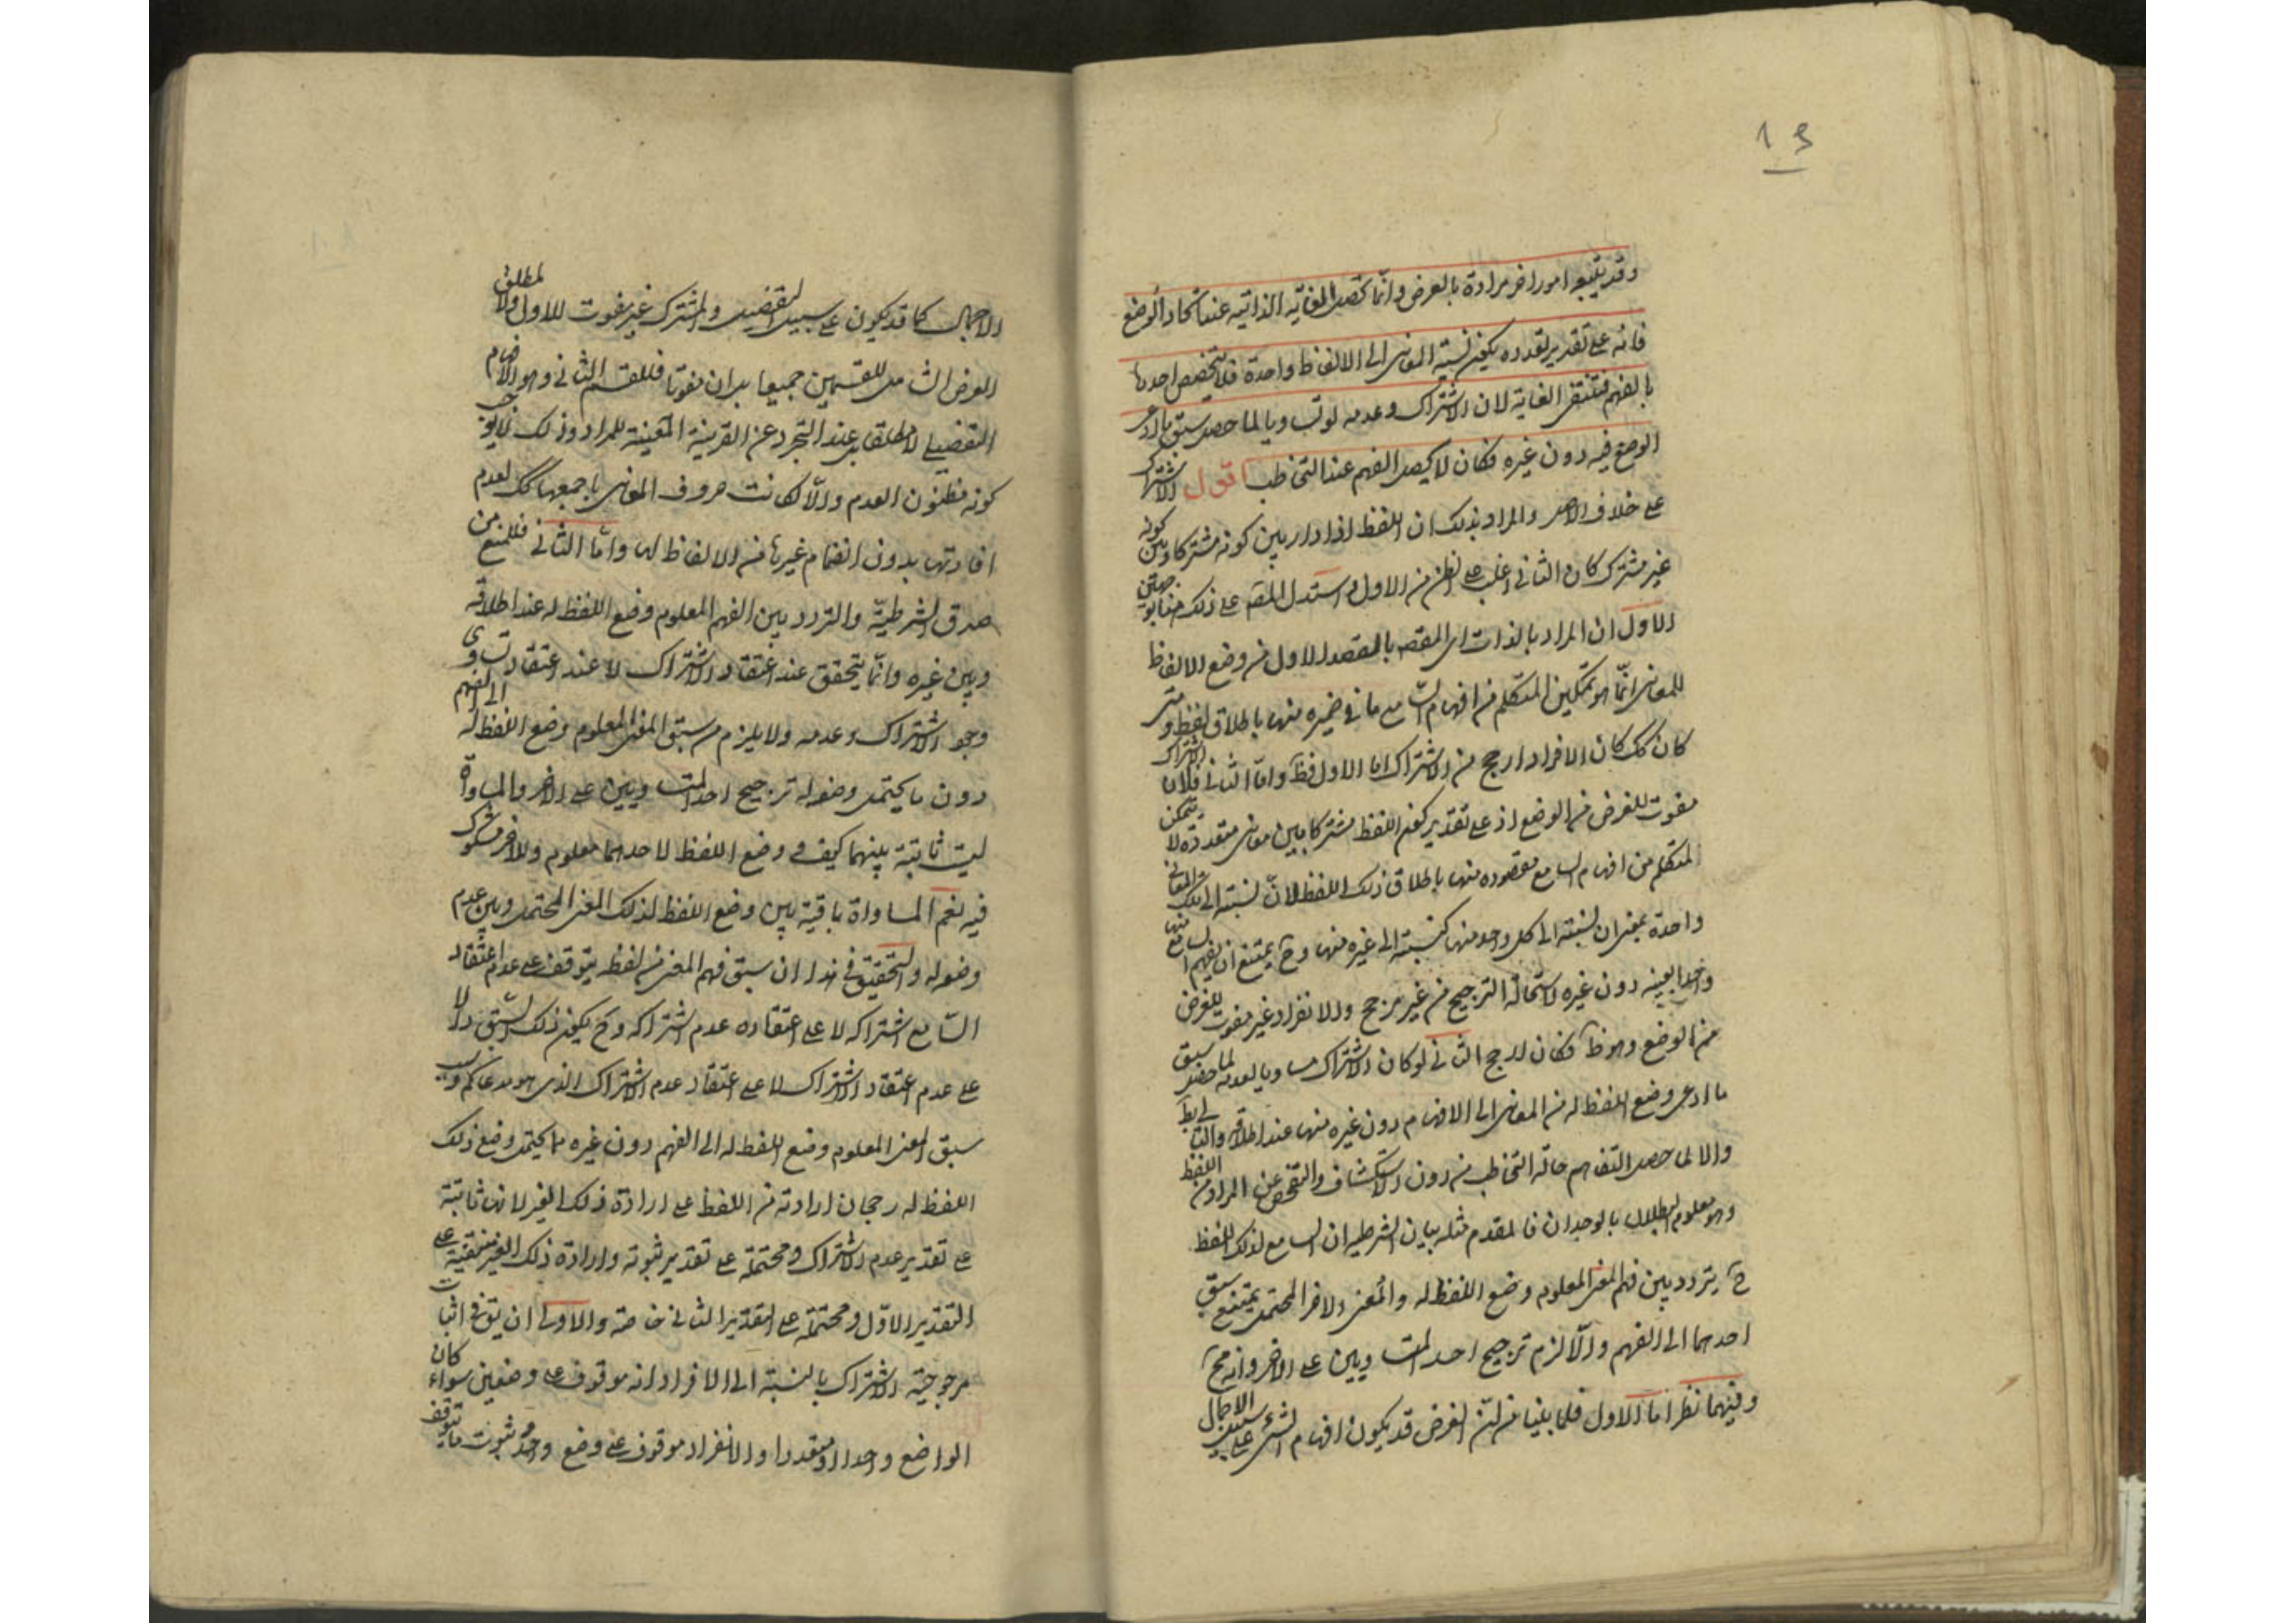 19
وقد يتبعه امور اخر مرادة بالعرض وانما تحصل الغاية الذاتية عند اتحاد الوضع
فانه على تقدير تعدده يكون نسبة المعانى الى الالفاظ واحدة فلا يتخصص احدها
بالفهم فتنتفى الغاية لان الاشتراك وعدمه لو تساويا لما حصل سبق ما ادعى
الوضع فيه دون غيره فكان لا يحصل الفهم عند التخاطب اقول الاشتراك
على خلاف الاصل والمراد بذلك ان اللفظ اذا دار بين كونه مشتركا وبين كونه
غير مشترك كان الثانى اغلب على الظن من الاول واستدل المصه على ذلك من جهتين
الاول ان المراد بالذات اى المقصد بالمقصد الاول من وضع الالفاظ
للمعانى انما هو تمكين المتكلم من افهام السامع ما فى ضميره منها باطلاق لفظ و متى
كان كك كان الافراد ارجح من الاشتراك اما الاول فظ واما الثانى فلان الاشتراك
مفوت للغرض من الوضع اذ على تقدير كون اللفظ مشتركا بين معانى متعددة لا يتمكن
المتكلم من افهام السامع مقصوده منها باطلاق ذلك اللفظ لان نسبته الى تلك المعانى
واحدة بمعنى ان نسبته الى كل واحد منها كنسبته الى غيره منها وح يمتنع ان يفهم السامع منها
واحدا بعينه دون غيره لاستحالة الترجيح من غير مرجح والانفراد غير مفوت للغرض
من الوضع وهو ظ فكان ارجح الثانى لو كان الاشتراك مساويا لعدمه لما حصل سبق
ما ادعى وضع اللفظ له من المعانى الى الافهام دون غيره منها عند اطلاقه والتالى بط
والا لما حصل التفاهم حالة التخاطب من دون الاستكشاف والتفحص عن المراد من اللفظ
وهو معلوم البطلان بالوجدان فالمقدم مثله بيان الشرطية ان السامع لذلك اللفظ
ح يتردد بين فهم المعنى المعلوم وضع اللفظ له والمعنى الاخر المحتمل يمتنع سبق
احدهما الى الفهم والا لزم ترجيح احد المتساويين على الاخر وانه مح
وفيهما نظر اما الاول فلما بينا من ان الغرض قد يكون افهام الشئ على سبيل الاجمال
الاجمال كما قد يكون على سبيل التفصيل والمشترك غير مفوت للاول ولا لمطلق
الغرض الشامل للقسمين جميعا بل ان مفوتا فللقسم الثانى وهو الافهام
التفصيلى لا مطلقا بل عند التجرد عن القرينة المعينة للمراد وذلك لا يوجب
كونه مظنون العدم والا لكانت حروف المعانى باجمعها كك لعدم
افادتها بدون انضمام غيرها من الالفاظ لها واما الثانى فللمنع من
صدق الشرطية والتردد بين الفهم المعلوم وضع اللفظ له عند اطلاقه
وبين غيره وانما يتحقق عند اعتقاد الاشتراك لا عند اعتقاد تساوى
وجود الاشتراك وعدمه ولا يلزم من سبق المعنى المعلوم وضع اللفظ له الى الفهم
دون ما يحتمل وضعه له ترجيح احد المتساويين على الاخر والمساواة
ليست ثابتة بينهما كيف و وضع اللفظ لاحدهما معلوم وللاخر مشكوك
فيه نعم المساواة باقية بين وضع اللفظ لذلك المعنى المحتمل وبين عدم
وضعه له والتحقيق فى هذا ان سبق فهم المعنى من لفظه يتوقف على عدم اعتقاد
السامع اشتراكه لا على اعتقاده عدم اشتراكه وح يكون ذلك السبق دالا
على عدم اعتقاد الاشتراك لا على اعتقاد عدم الاشتراك الذى هو مدعاكم وسبب
سبق المعنى المعلوم وضع اللفظ له الى الفهم دون غيره مما يحتمل وضع ذلك
اللفظ له رجحان ارادته من اللفظ على ارادة ذلك الغير لانها ثابتة
على تقدير عدم الاشتراك ومحتملة على تقدير ثبوته وارادة ذلك الغير منتفية على
التقدير الاول ومحتملة على التقدير الثانى خاصة والاولى ان يقع فى اثبات
مرجوحية الاشتراك بالنسبة الى الافراد انه موقوف على وضعين سواء كان
الواضع واحدا او متعددا والانفراد موقوف على وضع واحد ثبوت ما يتوقف